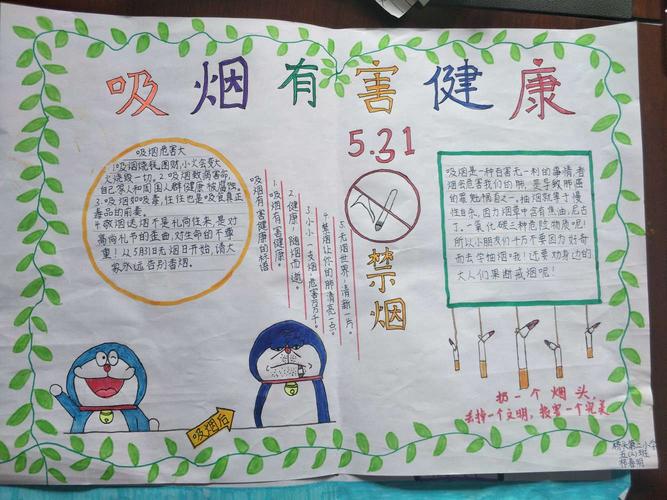 吸烟有害健康
5.31
禁烟
吸烟危害大
1.吸烟烧钱,图财,小火会变大
火烧毁一切。2.吸烟致病害命,
自己家人和周围人群健康被腐蚀。
3.吸烟如吸毒,往往也是吸食真正
毒品的前奏。
4.敬烟送烟不是礼尚往来,是对
高尚礼节的歪曲,对生命的不尊
重!从5月31日无烟日开始,请大
家永远告别香烟。
吸烟有害健康的标语
1.吸烟有害健康。
2.健康,随烟而逝。
3.小小一支烟,危害万万千。
4.禁烟让你的肺清亮一点。
5.无烟世界,清新一片。
吸烟是一种百害无一利的事情,者
烟会危害我们的肺,是导致肺癌
的罪魁祸首之一。抽烟就等于慢
性自杀,因为烟草中含有焦油,尼古
丁,一氧化碳三种危险物质呢!
所以小朋友们千万不要因为好奇
而去学抽烟哦!还要劝身边的
大人们果断戒烟呢!
吸烟后
扔一个烟头,
丢掉一个文明,损害一个完美
桥头第二小学
五(2)班